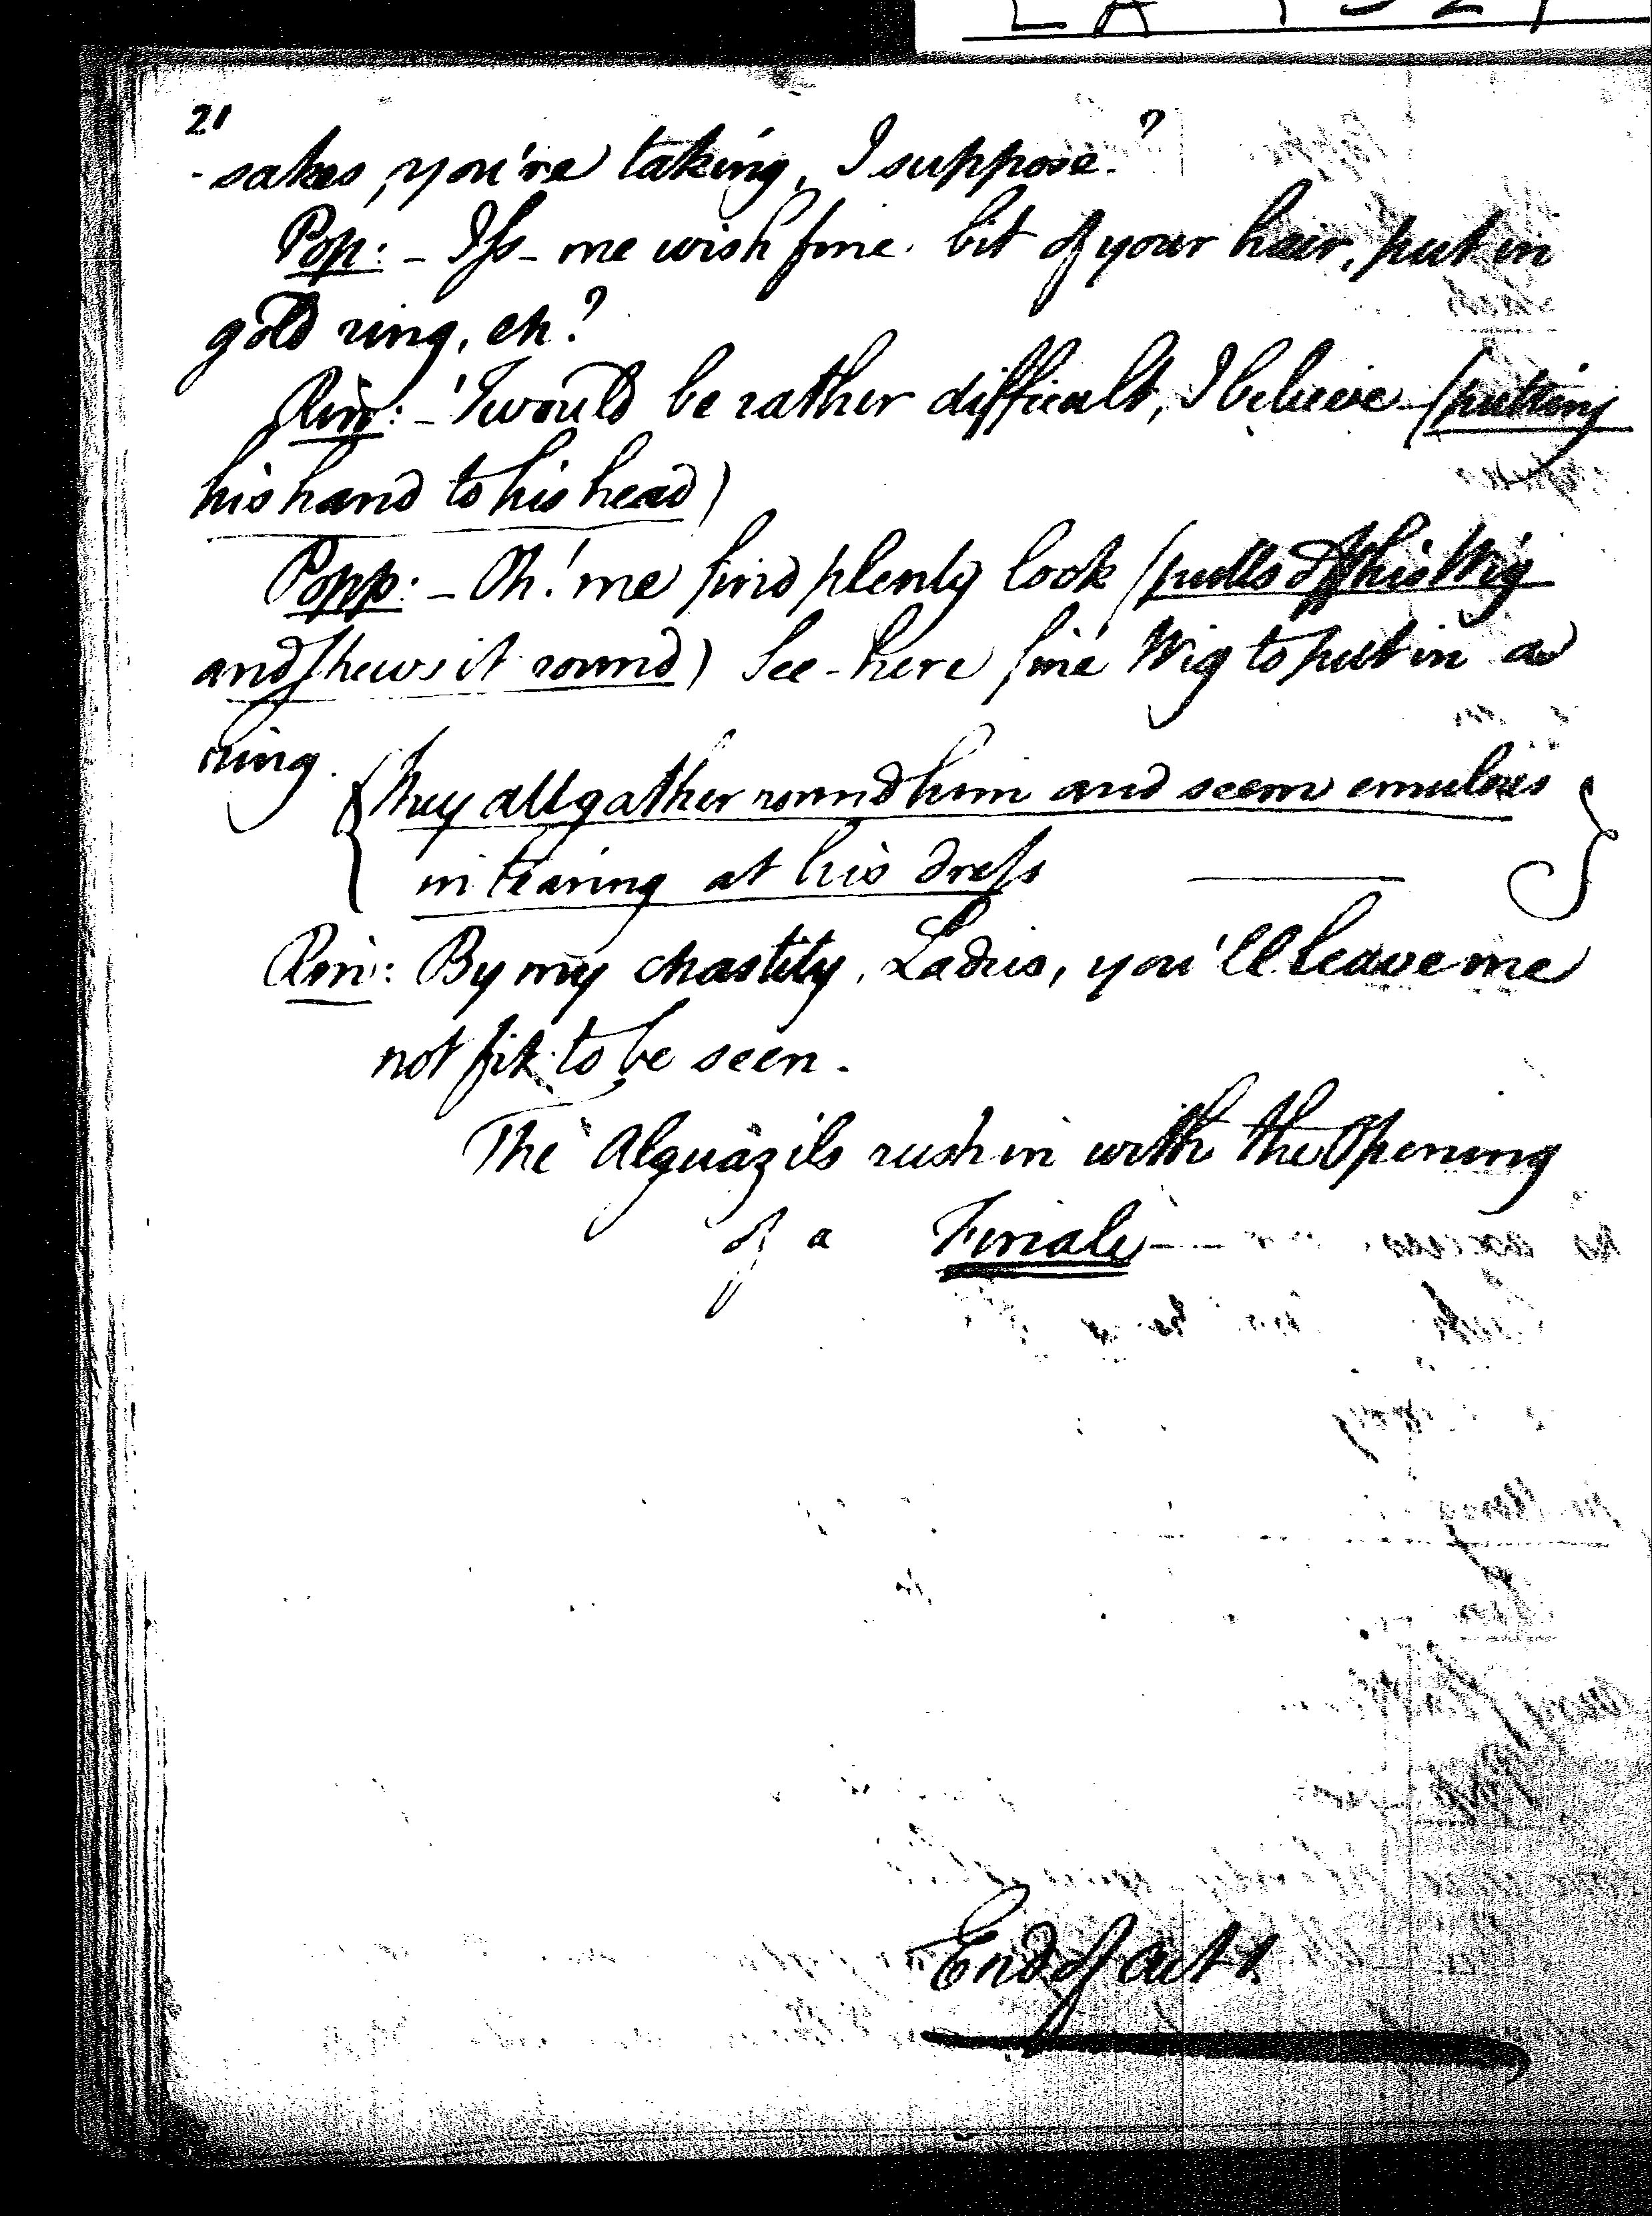 21
-sakes, you're taking, I suppose?
Pop: - Iſs - me wish fine bit of your hair, put in
gold ring, eh?
Rin: - 'Twould be rather difficult, I believe - (putting
his hand to his head)
Popp: - Oh! me find plenty look (pulls off his Wig
and shews it round) See - here fine Wig to put in a
ring.
{They all gather round him and seem emulous
in tearing at his dreſs }
Rin: By my chastity, Ladies, you'll leave me
not fit to be seen.
The Alguazils rush in with the Opening
of a Finale
End of Act 1.